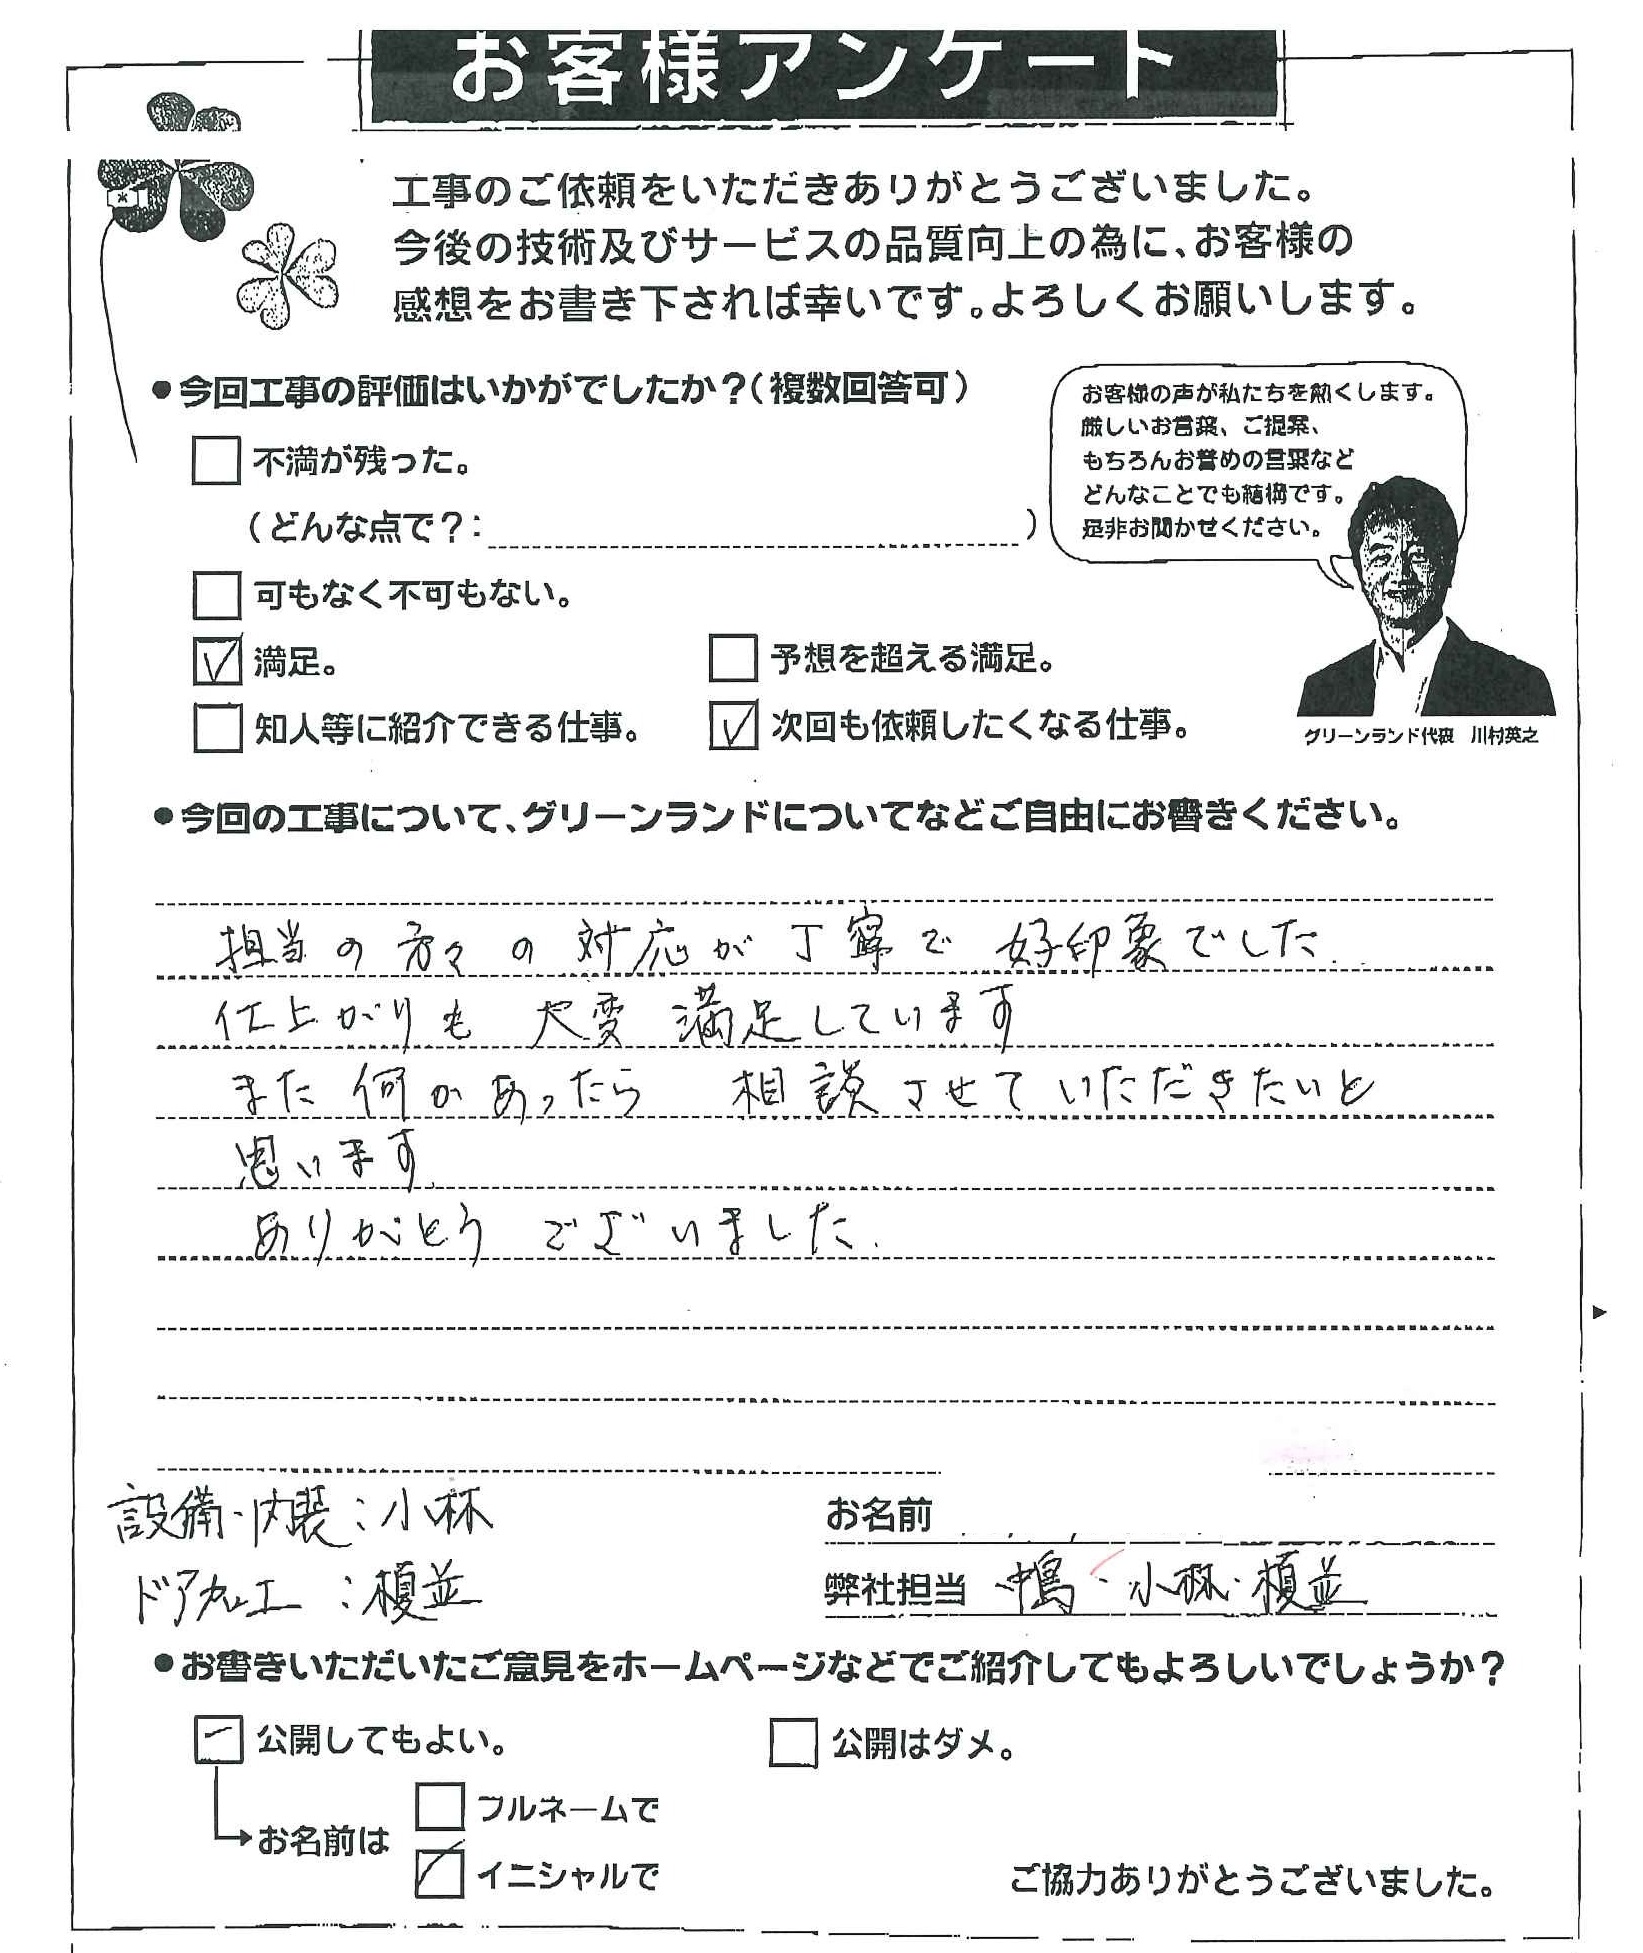 お客様アンケート
工事のご依頼をいただきありがとうございました。
今後の技術及びサービスの品質向上の為に、お客様の
感想をお書き下されれば幸いです。よろしくお願いします。
●今回工事の評価はいかがでしたか？（複数回答可）
不満が残った。
（どんな点で？： ）
可もなく不可もない。
満足。
予想を超える満足。
知人等に紹介できる仕事。
次回も依頼したくなる仕事。
お客様の声が私たちを熱くします。
厳しいお言葉、ご提案、
もちろんお誉めの言葉など
どんなことでも結構です。
是非お聞かせください。
グリーンランド代表 川村英之
●今回の工事について、グリーンランドについてなどご自由にお書きください。
担当の方々の対応が丁寧で好印象でした.
仕上がりも大変満足しています
また何かあったら 相談させていただきたいと
思います.
ありがとうございました.
設備・内装：小林
ドア加工：榎並
お名前
弊社担当 鴨・小林・榎並
●お書きいただいたご意見をホームページなどでご紹介してもよろしいでしょうか？
公開してもよい。
公開はダメ。
お名前は
フルネームで
イニシャルで
ご協力ありがとうございました。